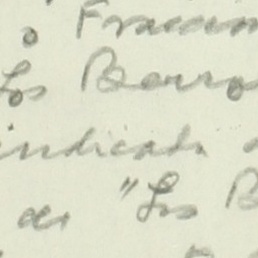 o Fraccio
Los Barro
indicada
de "Los B